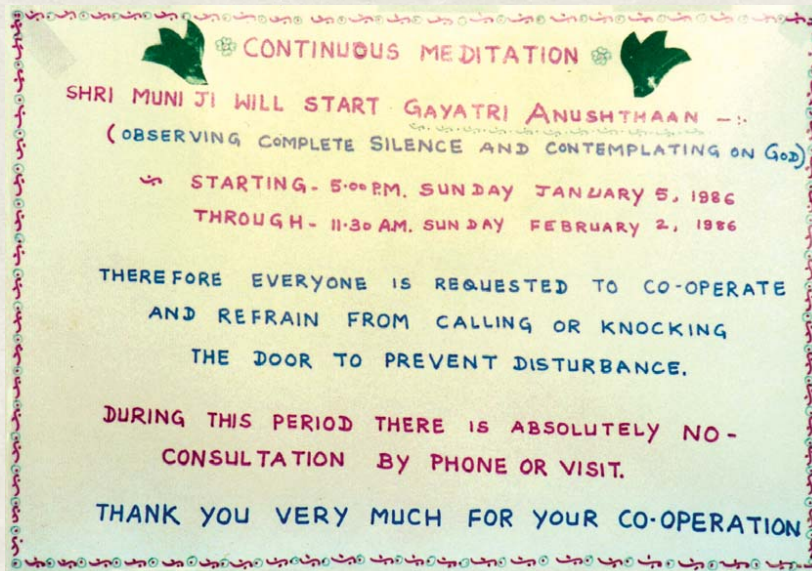 CONTINUOUS MEDITATION
SHRI MUNI JI WILL START GAYATRI ANUSHTHAAN -:-
(OBSERVING COMPLETE SILENCE AND CONTEMPLATING ON GOD)
STARTING- 5.00 P.M. SUNDAY JANUARY 5, 1986
THROUGH- 11.30 A.M. SUNDAY FEBRUARY 2, 1986
THEREFORE EVERYONE IS REQUESTED TO CO-OPERATE
AND REFRAIN FROM CALLING OR KNOCKING
THE DOOR TO PREVENT DISTURBANCE.
DURING THIS PERIOD THERE IS ABSOLUTELY NO-
CONSULTATION BY PHONE OR VISIT.
THANK YOU VERY MUCH FOR YOUR CO-OPERATION